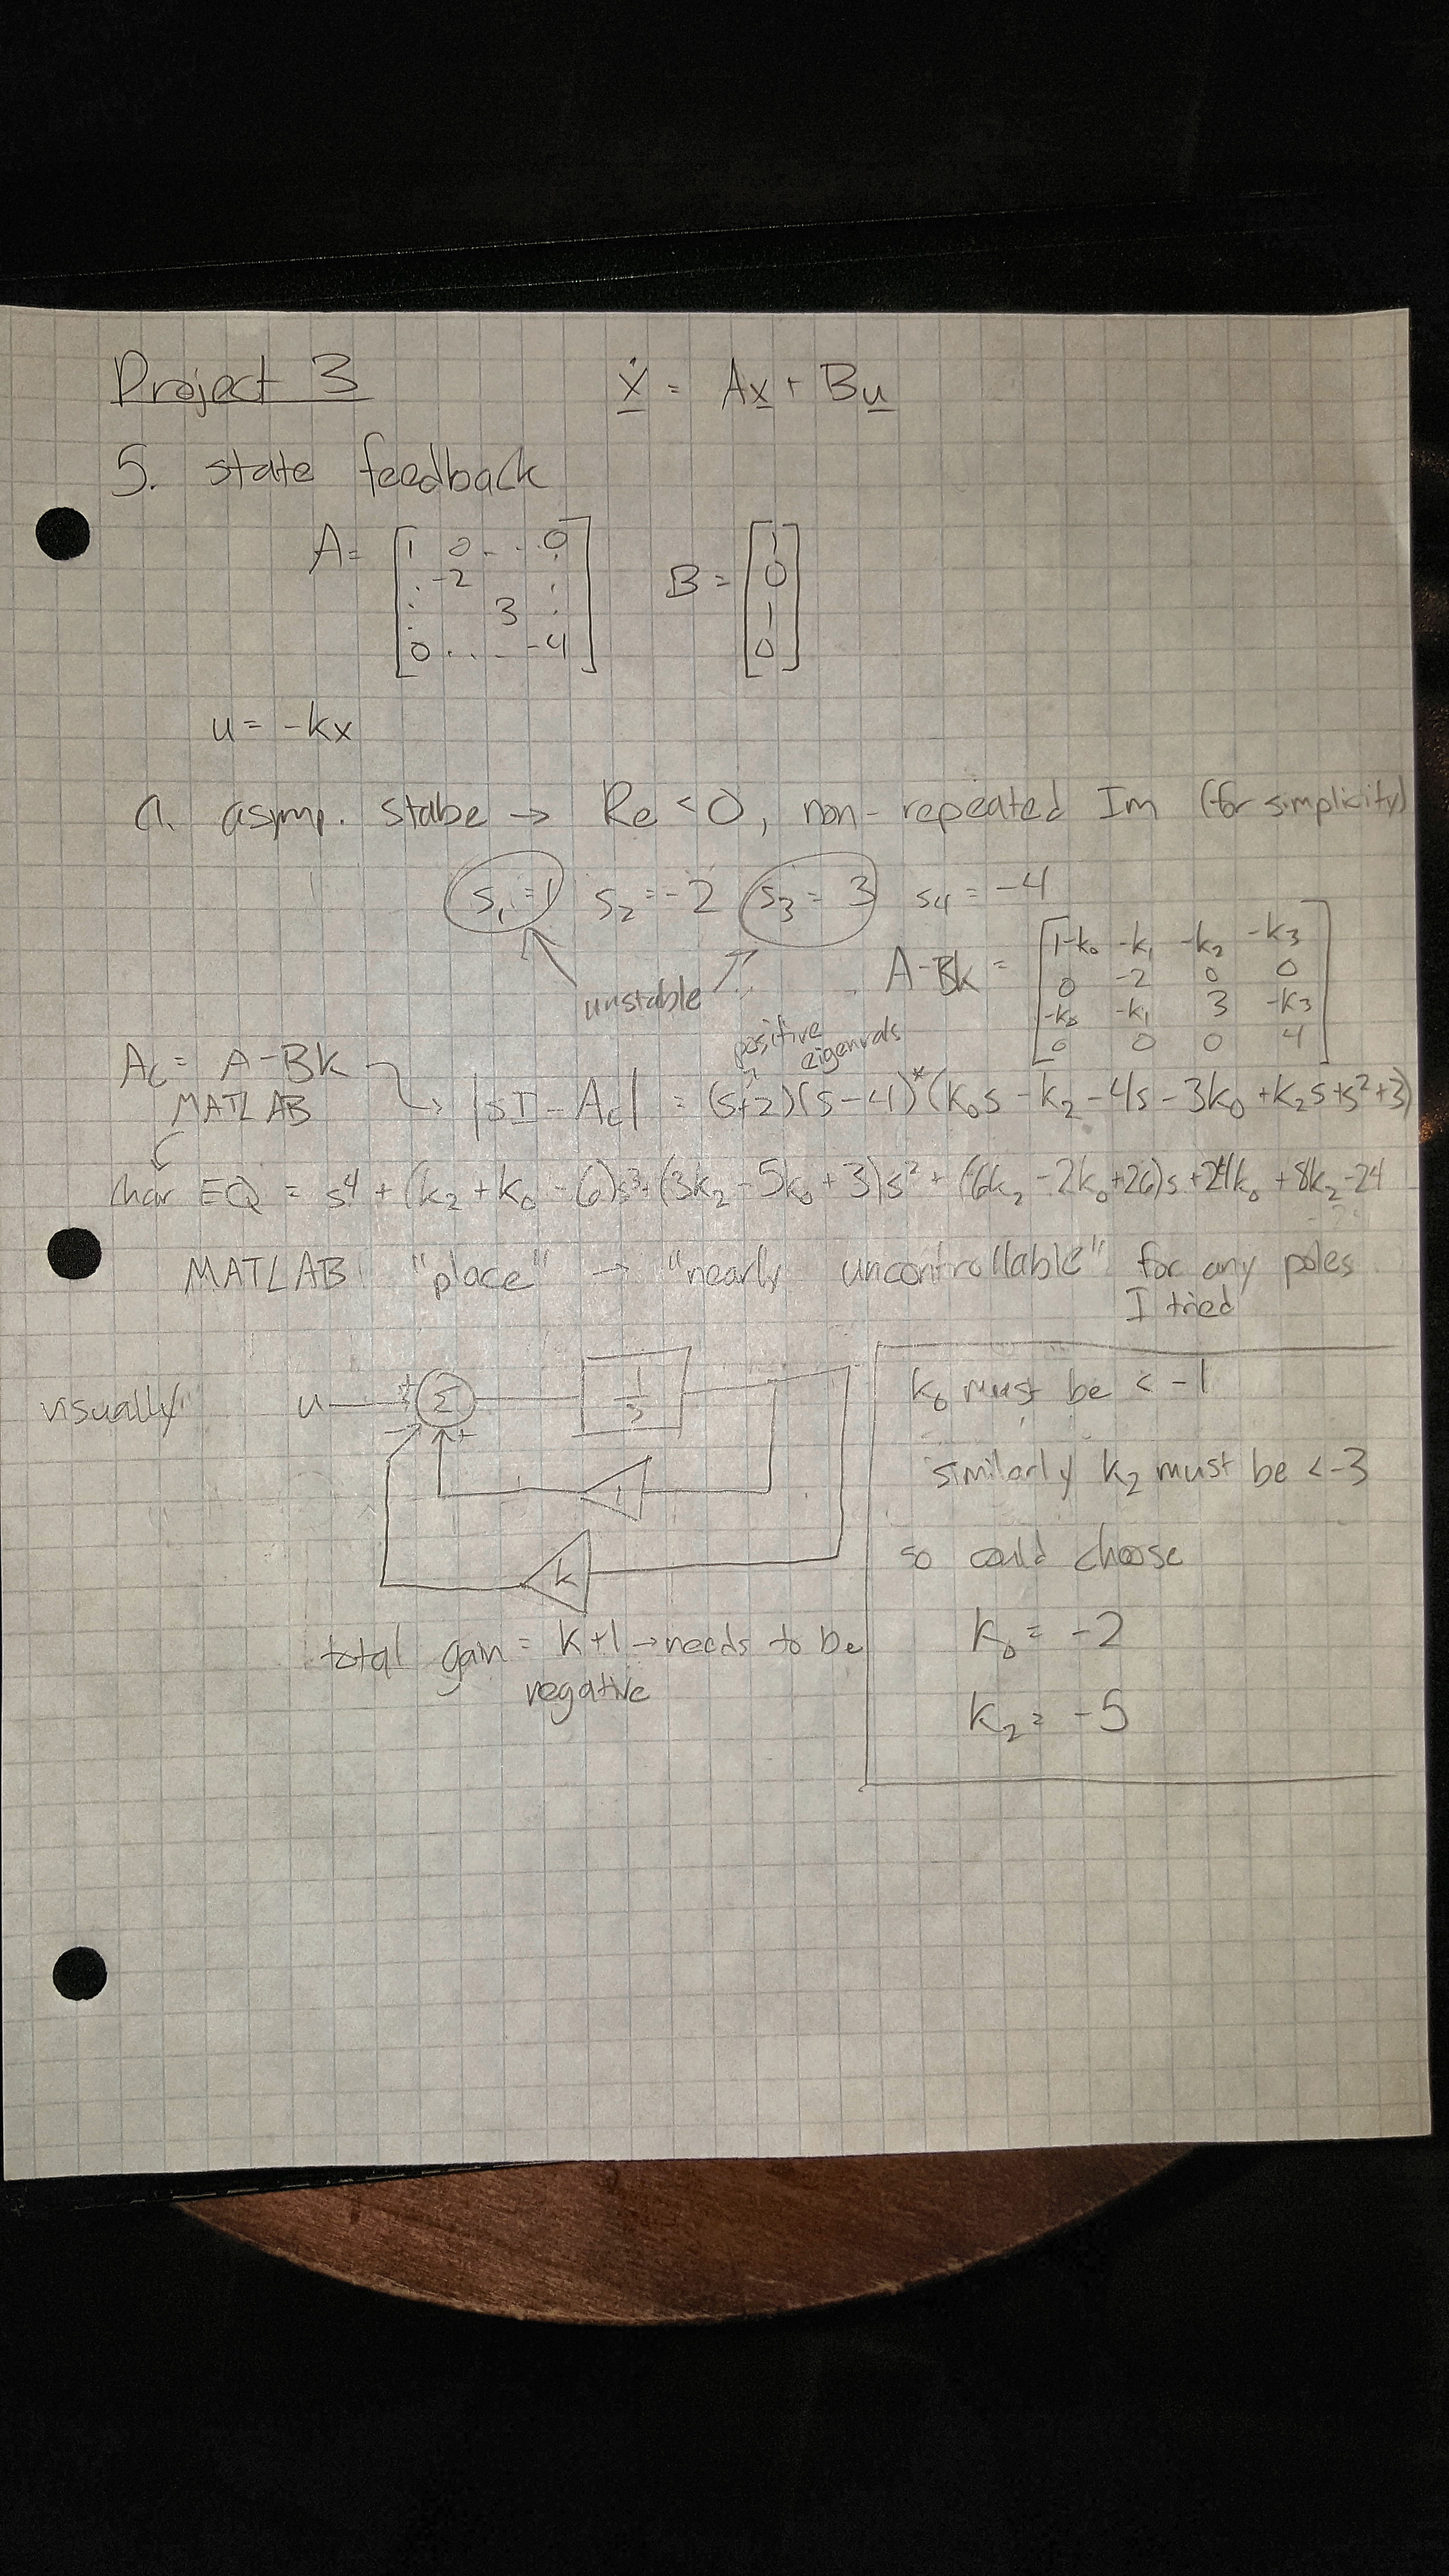 Project 3
ẋ = Ax + Bu
5. state feedback
A = [1 0 . . 0
: -2 :
: 3 :
0 . . . -4]
B = [1
0
1
0]
u = -kx
a. asym. stabe → Re < 0, non-repeated Im (for simplicity)
s₁ = 1 s₂ = -2 s₃ = 3 s₄ = -4
unstable
A-Bk = [1-k₀ -k₁ -k₂ -k₃
0 -2 0 0
-k₀ -k₁ 3 -k₃
0 0 0 4]
positive eigenvals
Ac = A-Bk → |sI - Ac| = (s+2)(s-4)*(k₀s - k₂ - 4s - 3k₀ + k₂s + s² + 3)
MATLAB
char EQ = s⁴ + (k₂ + k₀ - 6)s³ + (3k₂ - 5k₀ + 3)s² + (10k₂ - 2k₀ + 26)s + 24k₀ + 8k₂ - 24
MATLAB "place" → "nearly uncontrollable" for any poles
I tried
visually:
u + Σ 1/s
- +
1
k
total gain = k+1 → needs to be
negative
k₀ must be < -1
similarly k₂ must be < -3
so could choose
k₀ = -2
k₂ = -5